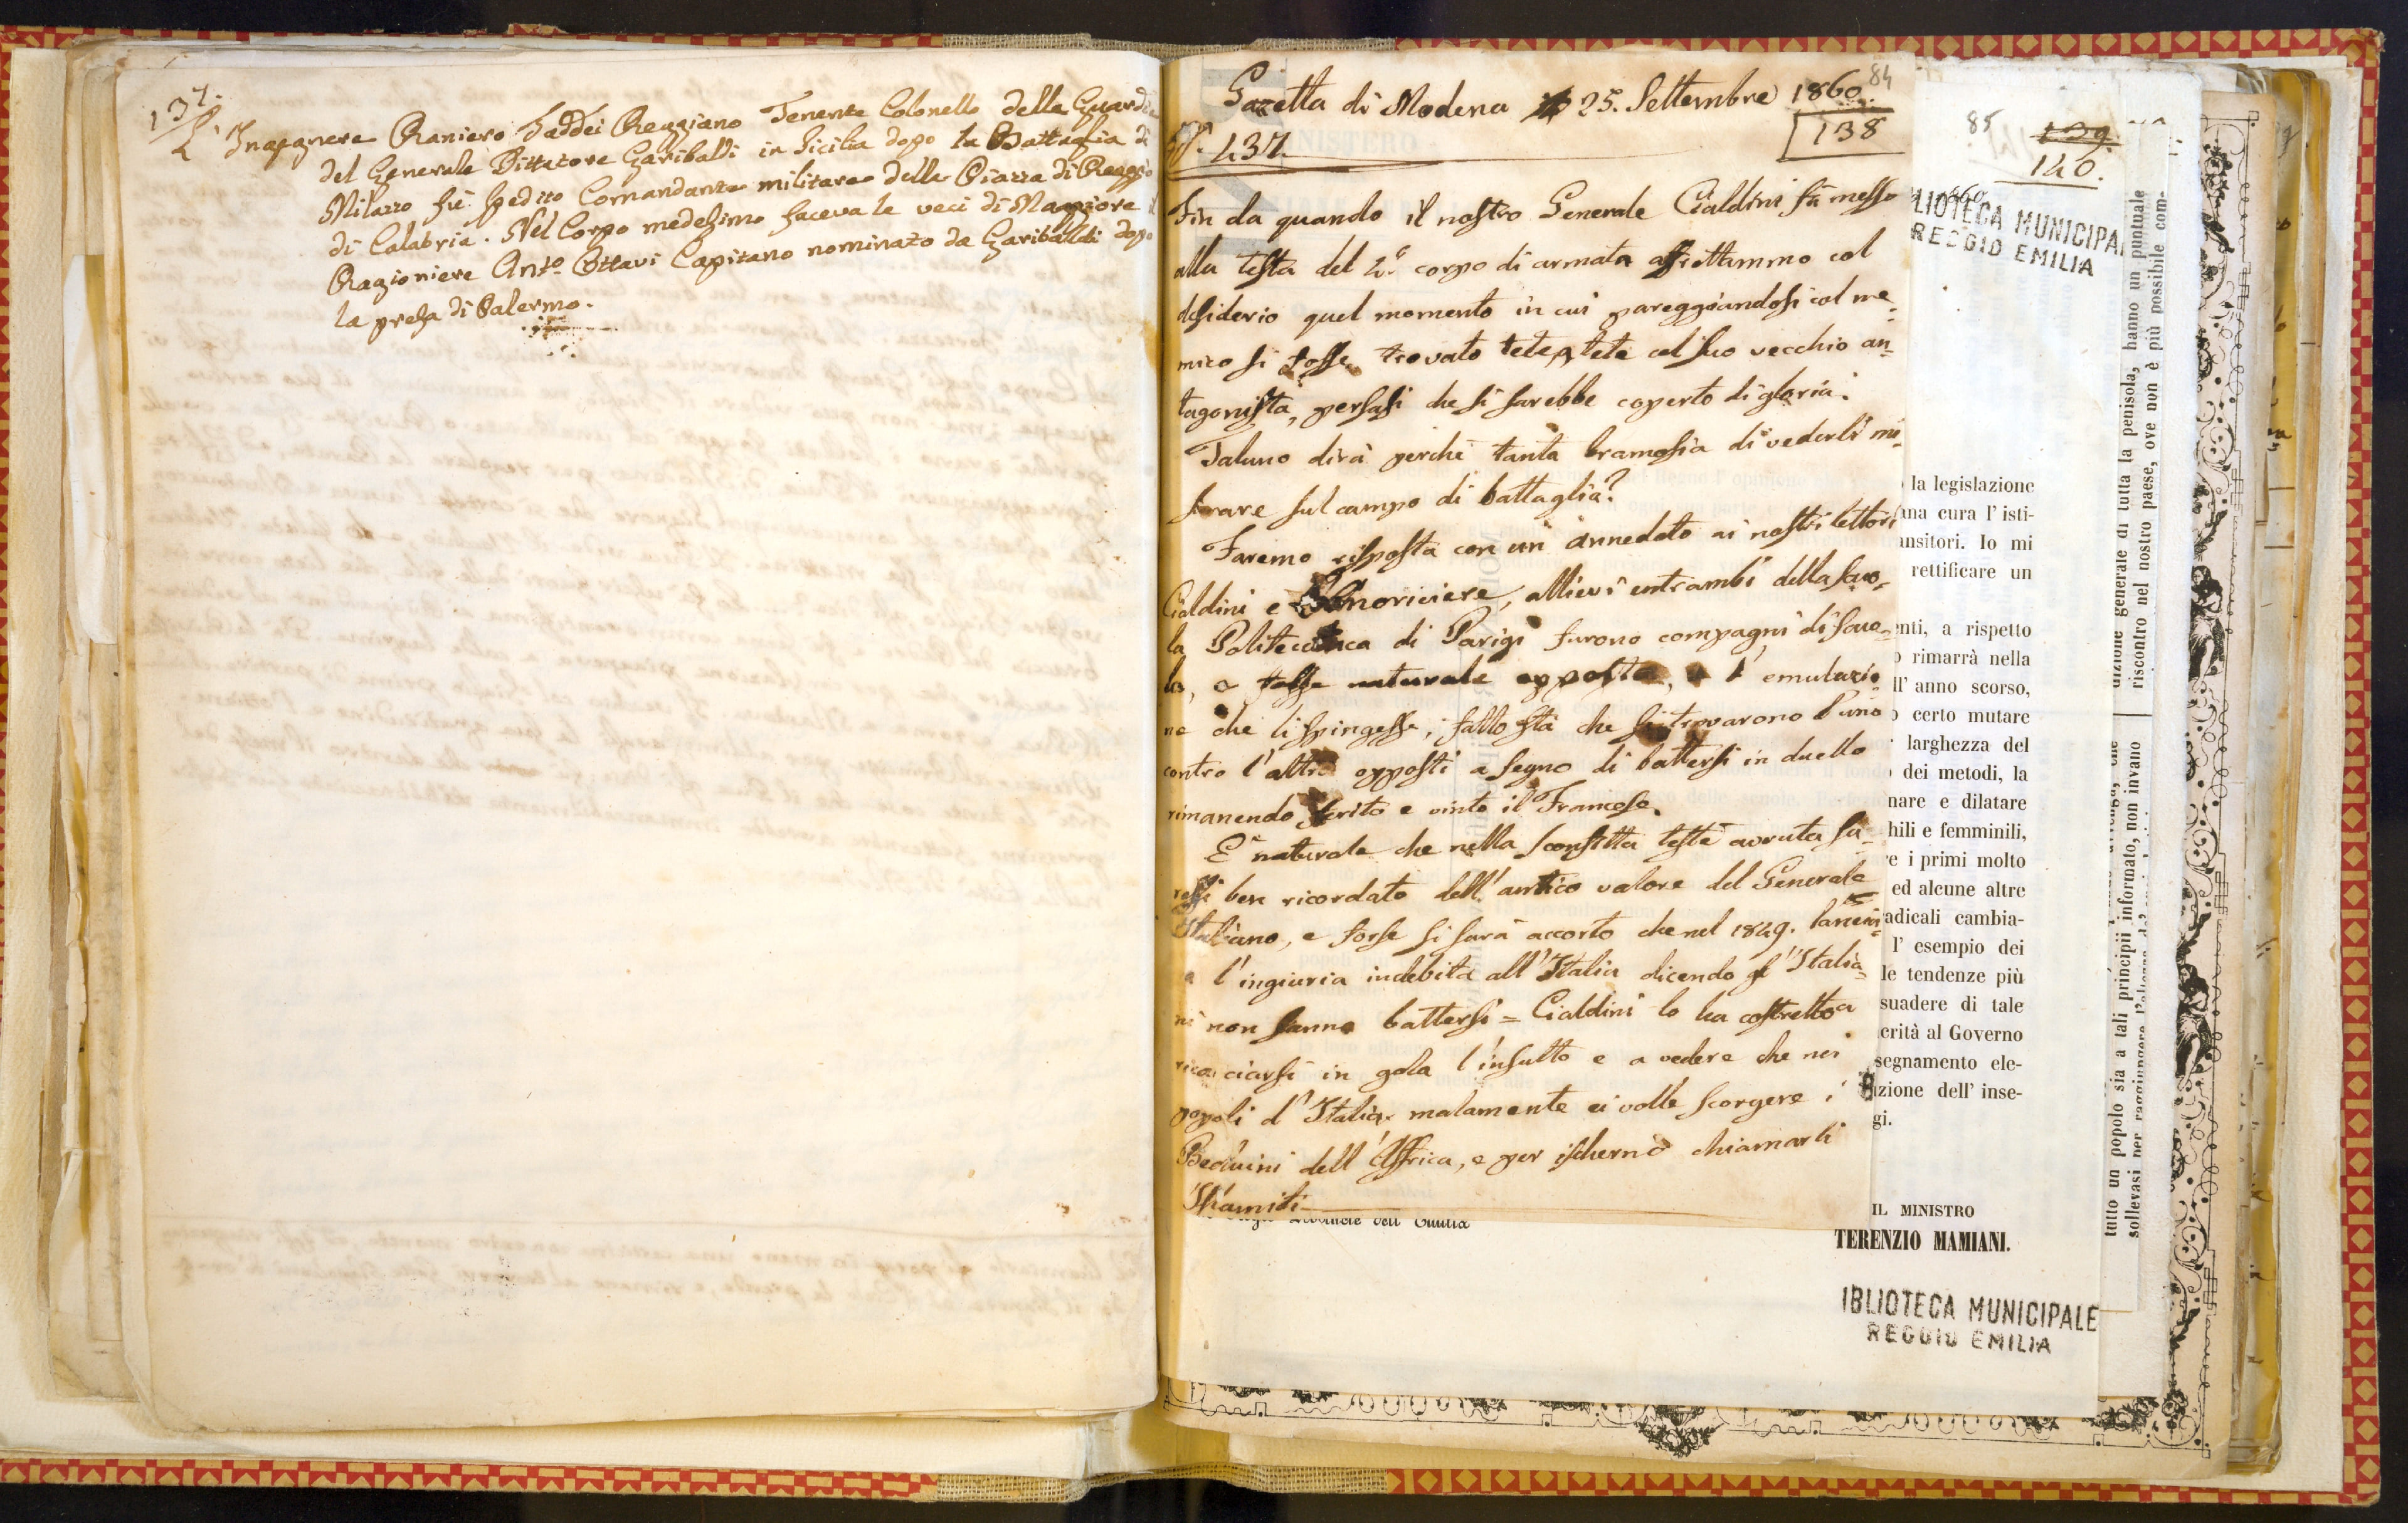 137.
L' Ingegnere Raniero Taddei Reggiano Tenente Colonello della Guardia
del Generale Dittatore Garibaldi in Sicilia dopo la Battaglia di
Milazzo fù spedito Comandante militare della Piazza di Reggio
di Calabria. Nel Corpo medesimo faceva le veci di Maggiore il
Ragioniere Ant.o Ottavi Capitano nominato da Garibaldi dopo
la presa di Palermo.
84
Gazetta di Modena 25. Settembre 1860.
N. 437.
138
Fin da quando il nostro Generale Cialdini fù messo
alla testa del 4.° corpo di armata affrettammo col
desiderio quel momento in cui pareggiandosi col ne=
mico si fosse trovato tete a tete col suo vecchio an=
tagonista, persuasi che si sarebbe coperto di gloria.
Taluno dirà perchè tanta bramosia di vederli mi=
surare sul campo di battaglia?
Faremo risposta con un anneddoto ai nostri lettori
Cialdini e Lamoriciere, allievi entrambi della Scuo=
la Politecnica di Parigi furono compagni di scuo=
la, o fosse naturale opposto, o l' emulazio=
ne che li spingesse, fatto stà che si trovarono l'uno
contro l'altro opposti a segno di battersi in duello
rimanendo ferito e vinto il Francese.
E' naturale che nella sconfitta testè avvuta sa=
rassi ben ricordato dell' antico valore del Generale
Italiano, e forse si sarà accorto che nel 1849. lancia=
a l'ingiuria indebita all' Italia dicendo gl' Italia=
ni non sanno battersi = Cialdini lo ha costretto a
ricacciarsi in gola l'insulto e a vedere che nei
popoli d' Italia malamente ei volle scorgere i
Beduini dell' Affrica, e per ischerno chiamarli
85
139.
140.
BLIOTECA MUNICIPA
REGGIO EMILIA
la legislazione
ana cura l' isti-
ansitori. Io mi
rettificare un
enti, a rispetto
o rimarrà nella
ll' anno scorso,
o certo mutare
larghezza del
dei metodi, la
nare e dilatare
hili e femminili,
re i primi molto
ed alcune altre
adicali cambia-
l' esempio dei
le tendenze più
suadere di tale
crità al Governo
segnamento ele-
azione dell' inse-
gi.
IL MINISTRO
TERENZIO MAMIANI.
IBLIOTECA MUNICIPALE
REGGIO EMILIA
dizione generale di tutta la penisola, hanno un puntuale
riscontro nel nostro paese, ove non è più possibile com-
tutto un popolo sia a tali principii informato, non invano
sollevasi per raggiungere